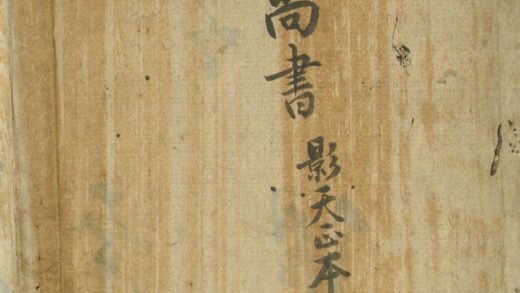 尚書
影天正本